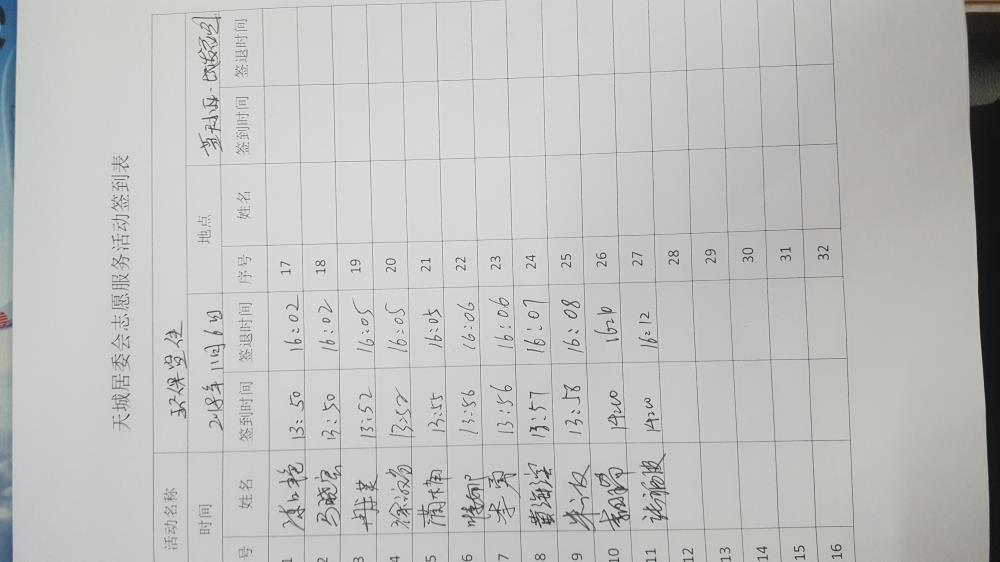 天城居委会志愿服务活动签到表
活动名称 环保宣传
时间 2018年11月6日 地点
号 姓名 签到时间 签退时间 序号 姓名 签到时间 签退时间
1 13:50 16:02 17
2 马晓宏 13:50 16:02 18
3 13:52 16:05 19
4 13:52 16:05 20
5 13:55 16:05 21
6 13:56 16:06 22
7 李勇 13:56 16:06 23
8 黄海滨 13:57 16:07 24
9 13:58 16:08 25
10 14:00 16:10 26
11 14:00 16:12 27
12 28
13 29
14 30
15 31
16 32